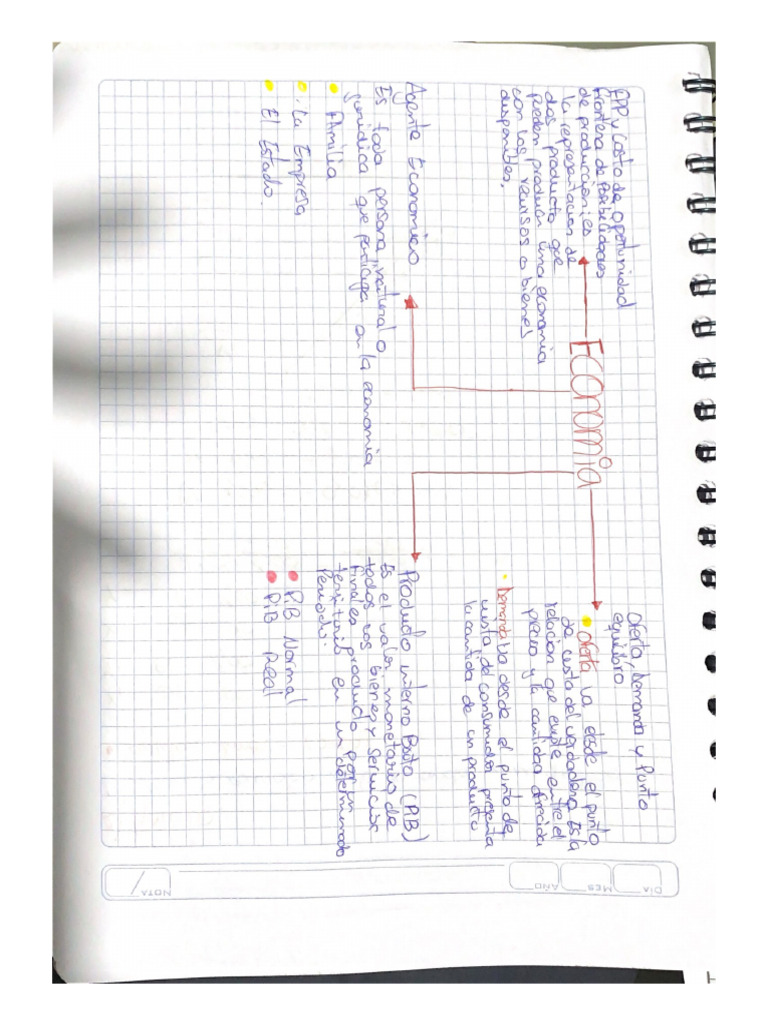 Economia
FPP y Costo de oportunidad
frontera de Posibilidades
de produccion es
la representacion de
dos producto que
pueden producir una economia
con los recursos o bienes
disponibles.
Agente Economico
Es toda persona natural o
juridica que participa en la economia
Familia
La Empresa
El Estado.
Oferta, Demanda y Punto
equilibro
Oferta la desde el punto
de vista del Es la
relacion que existe entre el
precio y la cantidad ofrecida
Demanda va desde el punto de
vista del consumidor presenta
la cantidad de un producto
Producto interno Bruto (PIB)
Es el valor monetario de
todos los bienes y servicios
finales producido por un
territorio en un determinado
Periodo.
PiB Normal
PiB Real
DÍA
MES
AÑO
NOTA